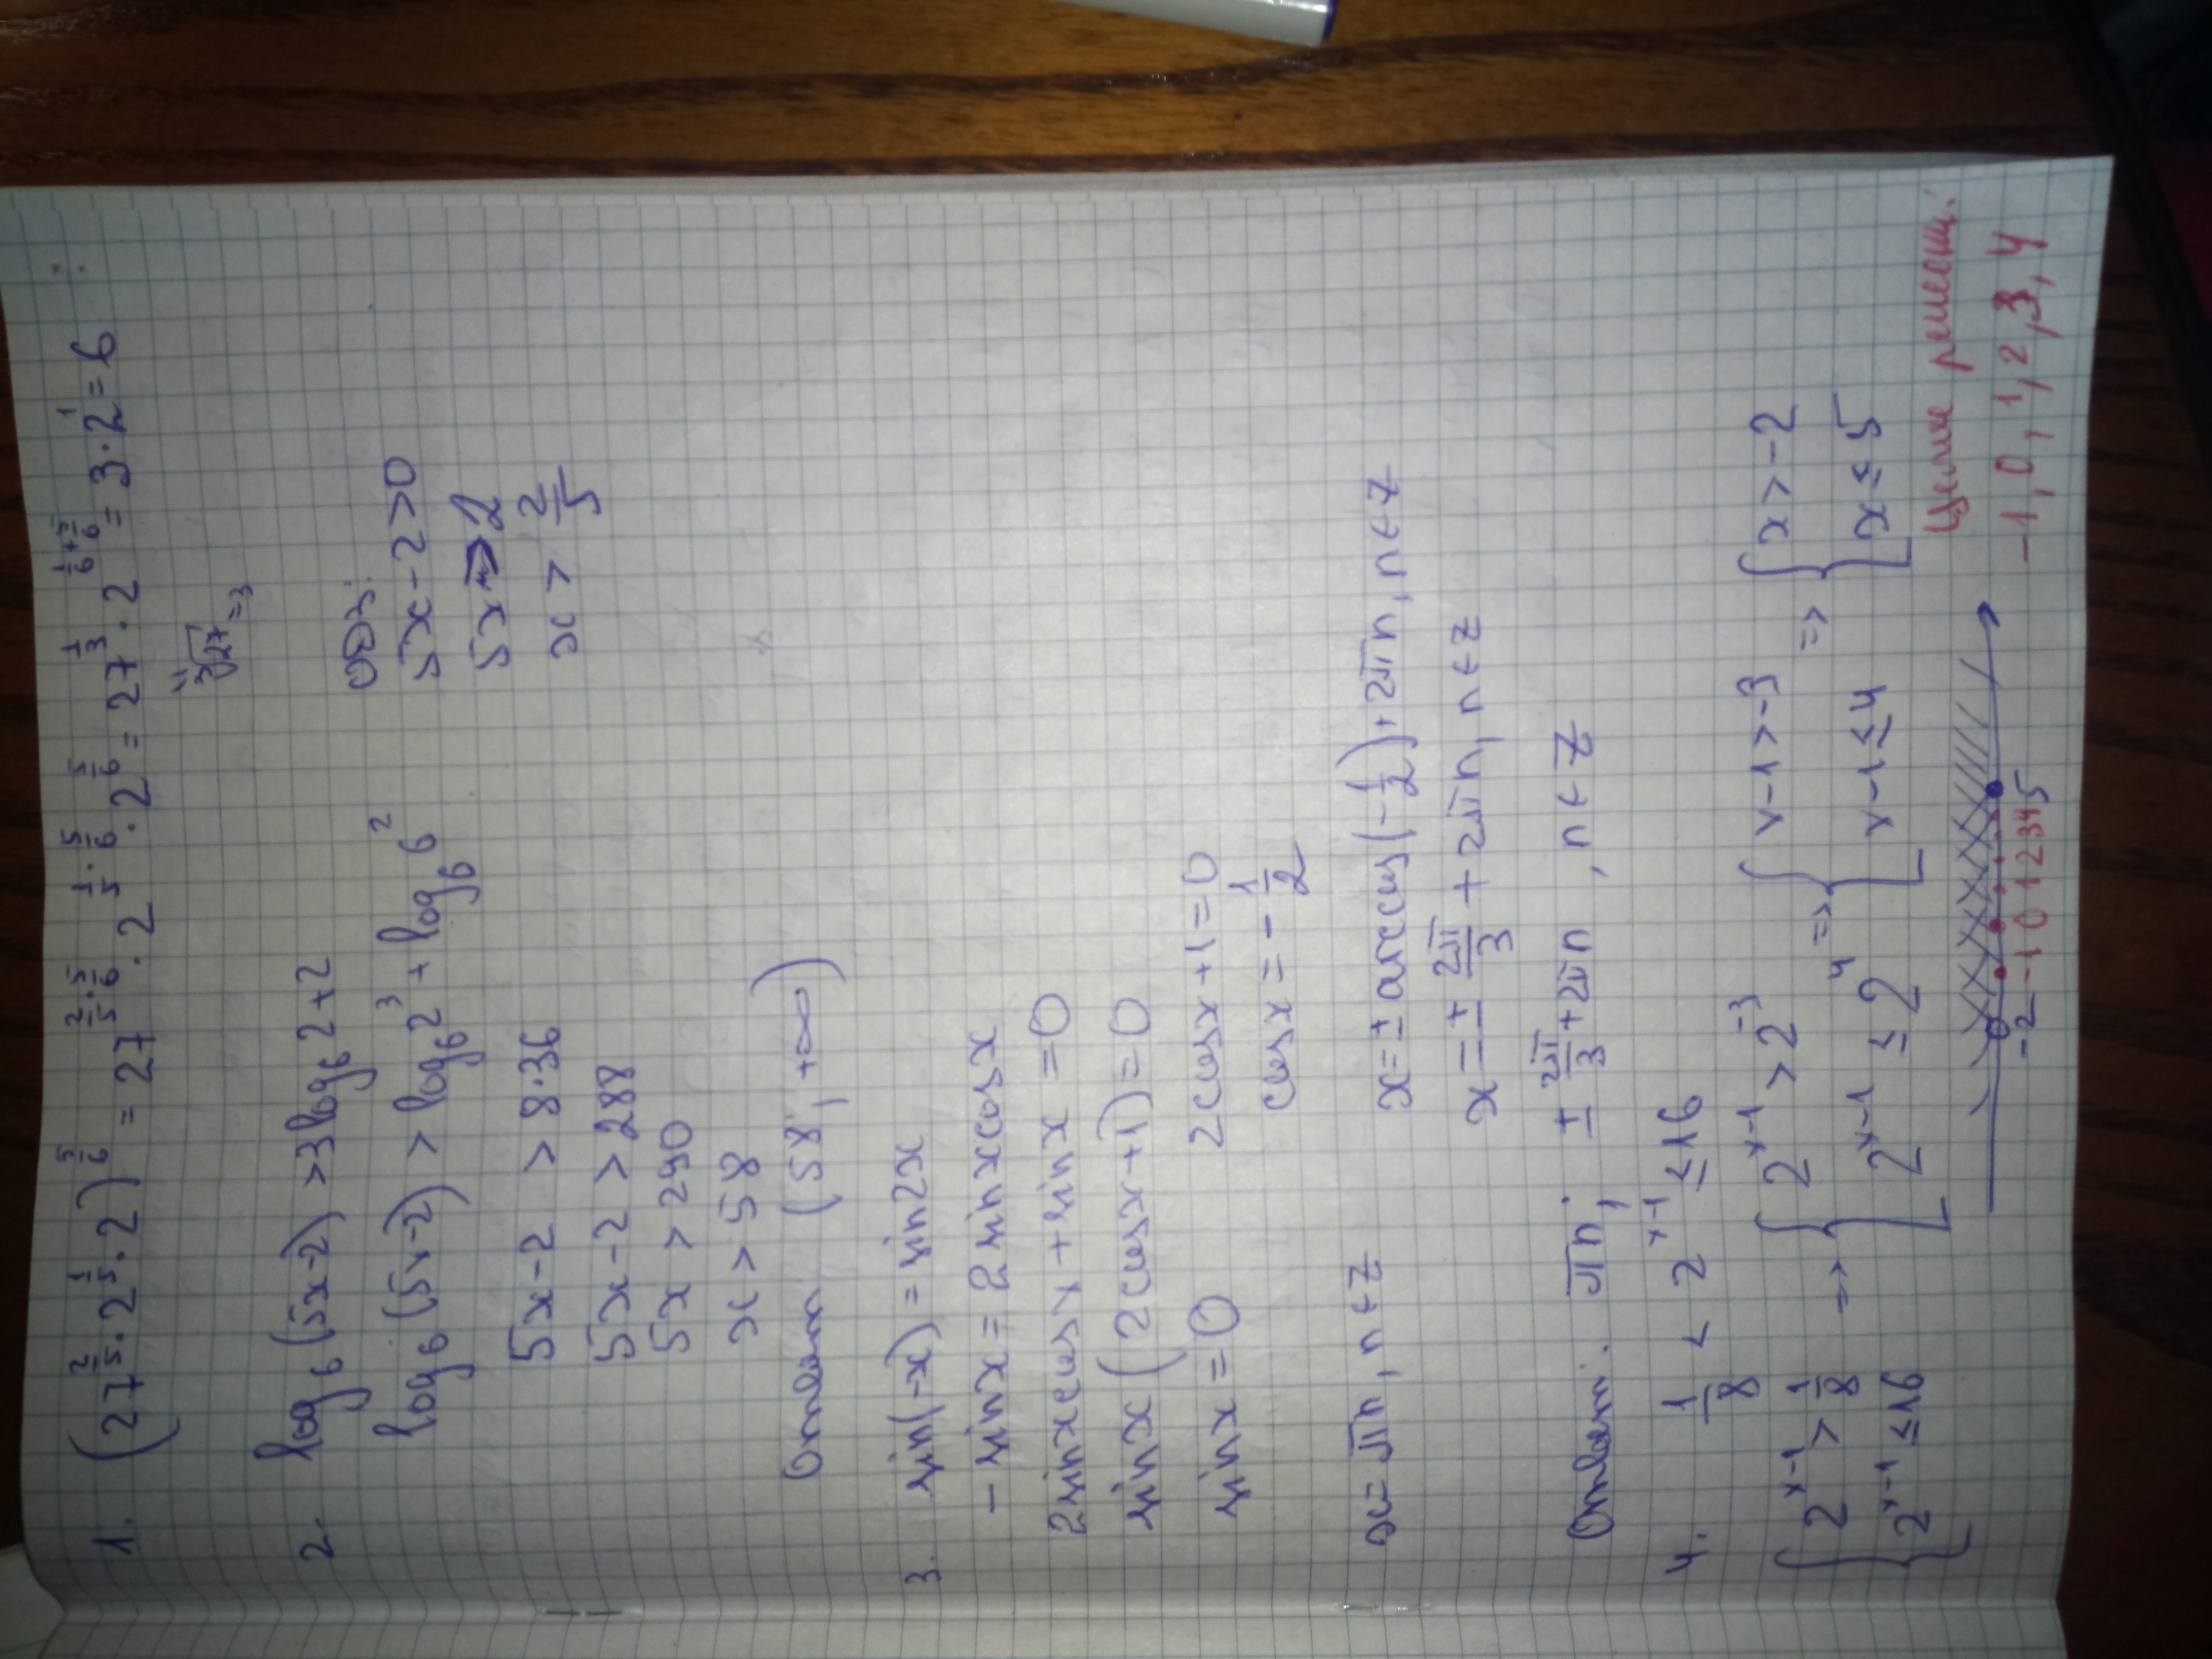 1. (27^{2/5} · 2^{1/5} · 2)^{5/6} = 27^{2/5 · 5/6} · 2^{1/5 · 5/6} · 2^{5/6} = 27^{1/3} · 2^{1/6 + 5/6} = 3 · 2^1 = 6
∛27 = 3
2. log₆(5x-2) > 3log₆2+2
ОДЗ:
log₆(5x-2) > log₆2³ + log₆6²
5x-2>0
5x-2 > 8·36
5x>2
5x-2 > 288
x > 2/5
5x > 290
x > 58
Ответ (58; +∞)
3. sin(-x) = sin2x
-sinx = 2sinxcosx
2sinxcosx + sinx = 0
sinx(2cosx+1)=0
sinx = 0    2cosx+1=0
cosx = -1/2
x=πn, n∈Z    x=± arccos(-1/2)+2πn, n∈Z
x=± 2π/3 + 2πn, n∈Z
Ответ: πn; ± 2π/3 +2πn, n∈Z
4. 1/8 < 2^{x-1} ≤16
{2^{x-1} > 1/8 => {2^{x-1} > 2^{-3} => {x-1>-3 => {x>-2
{2^{x-1} ≤16    {2^{x-1} ≤ 2^4    {x-1≤4    {x≤5
-2 -1 0 1 2 3 4 5
Целые решения:
-1, 0, 1, 2, 3, 4